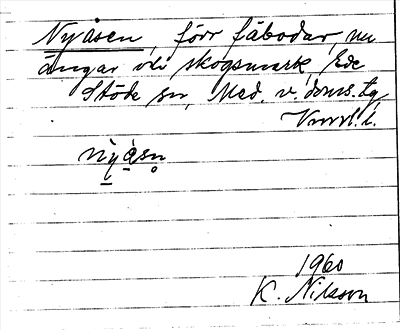 Nyåsen, förr fäbodar, nu
ängar o. skogsmark, Ede
Stöde sn, Med. v. doms. tg,
Vnorrl. l.
nỳåsn
1960
K. Nilsson